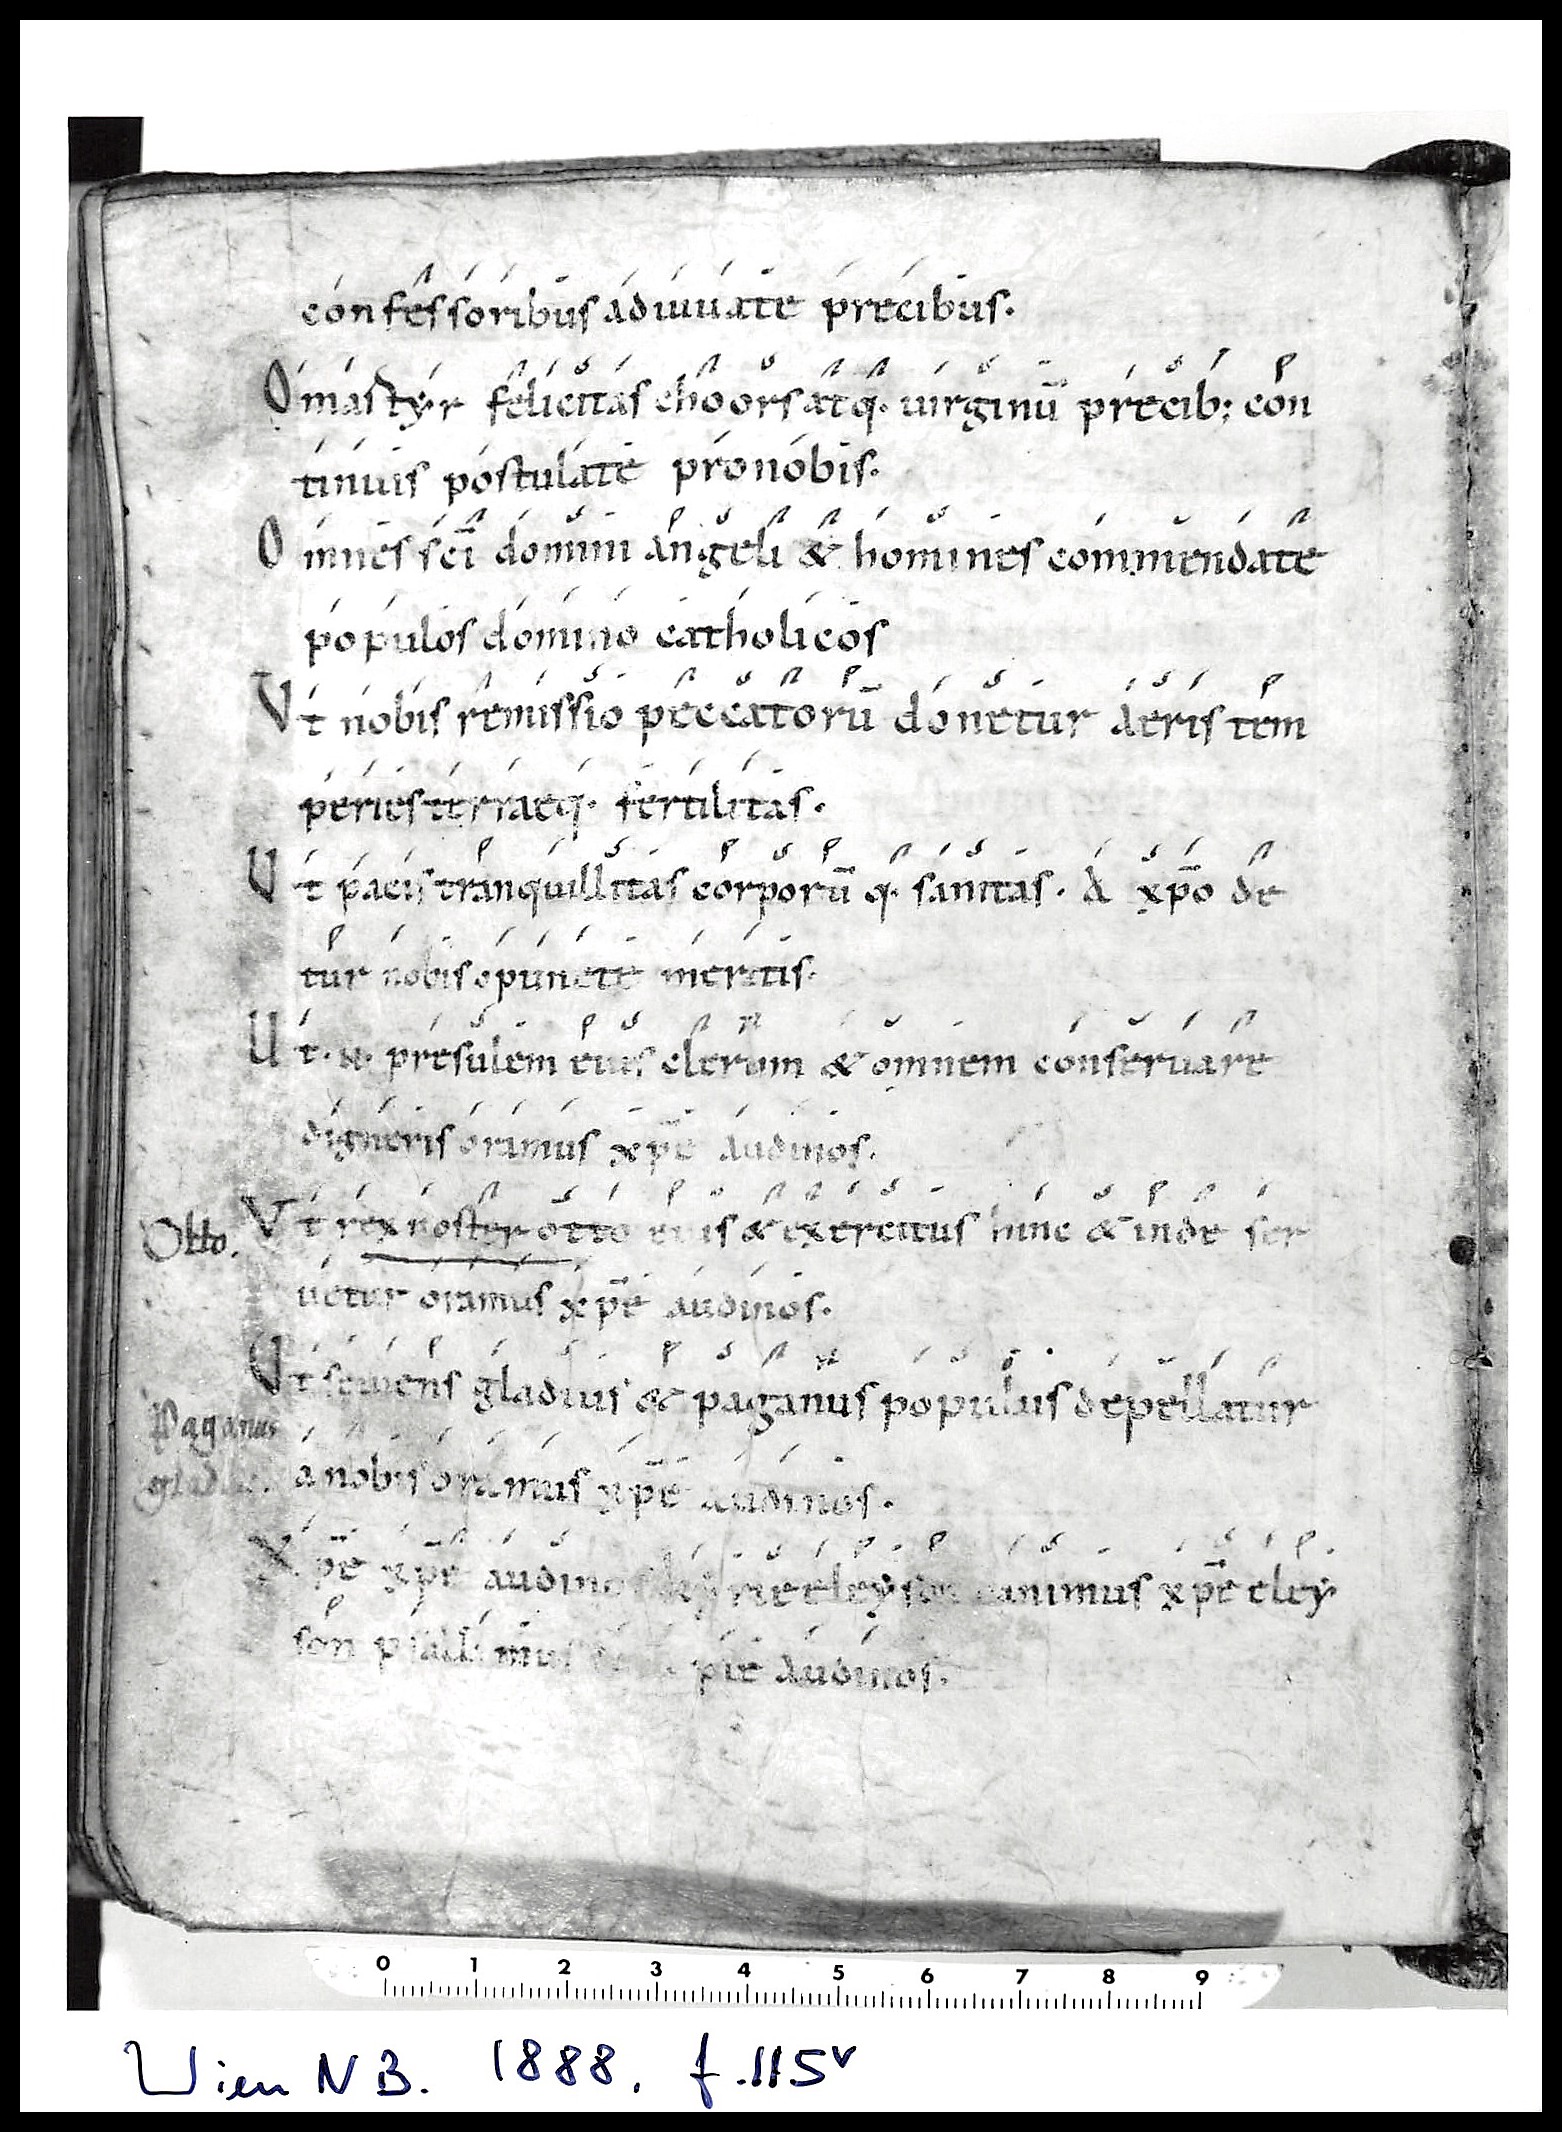 confessoribus adiuuate precibus.
O martyr felicitas choors atq. uirginū precib; con
tinuis postulate pro nobis.
O mnes sc̄i domini angeli & homines commendate
populos domino catholicos
Vt nobis remissio peccatorū donetur aeris tem
peries terraeq. fertilitas.
Ut pacis tranquillitas corporū q. sanitas. A xp̄o de
tur nobis opunete meritis.
Ut. N. presulem eius clerum & omnem conseruare
digneris oramus xp̄e audinos.
Otto.
Vt rex noster otto eius & exercitus hinc & inde ser
uetur oramus xp̄e audinos.
Ut seuiens gladius & paganus populus depellatur
Paganus
gladius.
a nobis oramus xp̄e audinos.
Xp̄e xp̄e audinos kyrie eleyson canimus xp̄e eley
son psallimus pie audinos.
0 1 2 3 4 5 6 7 8 9
Wien NB. 1888. f.115v